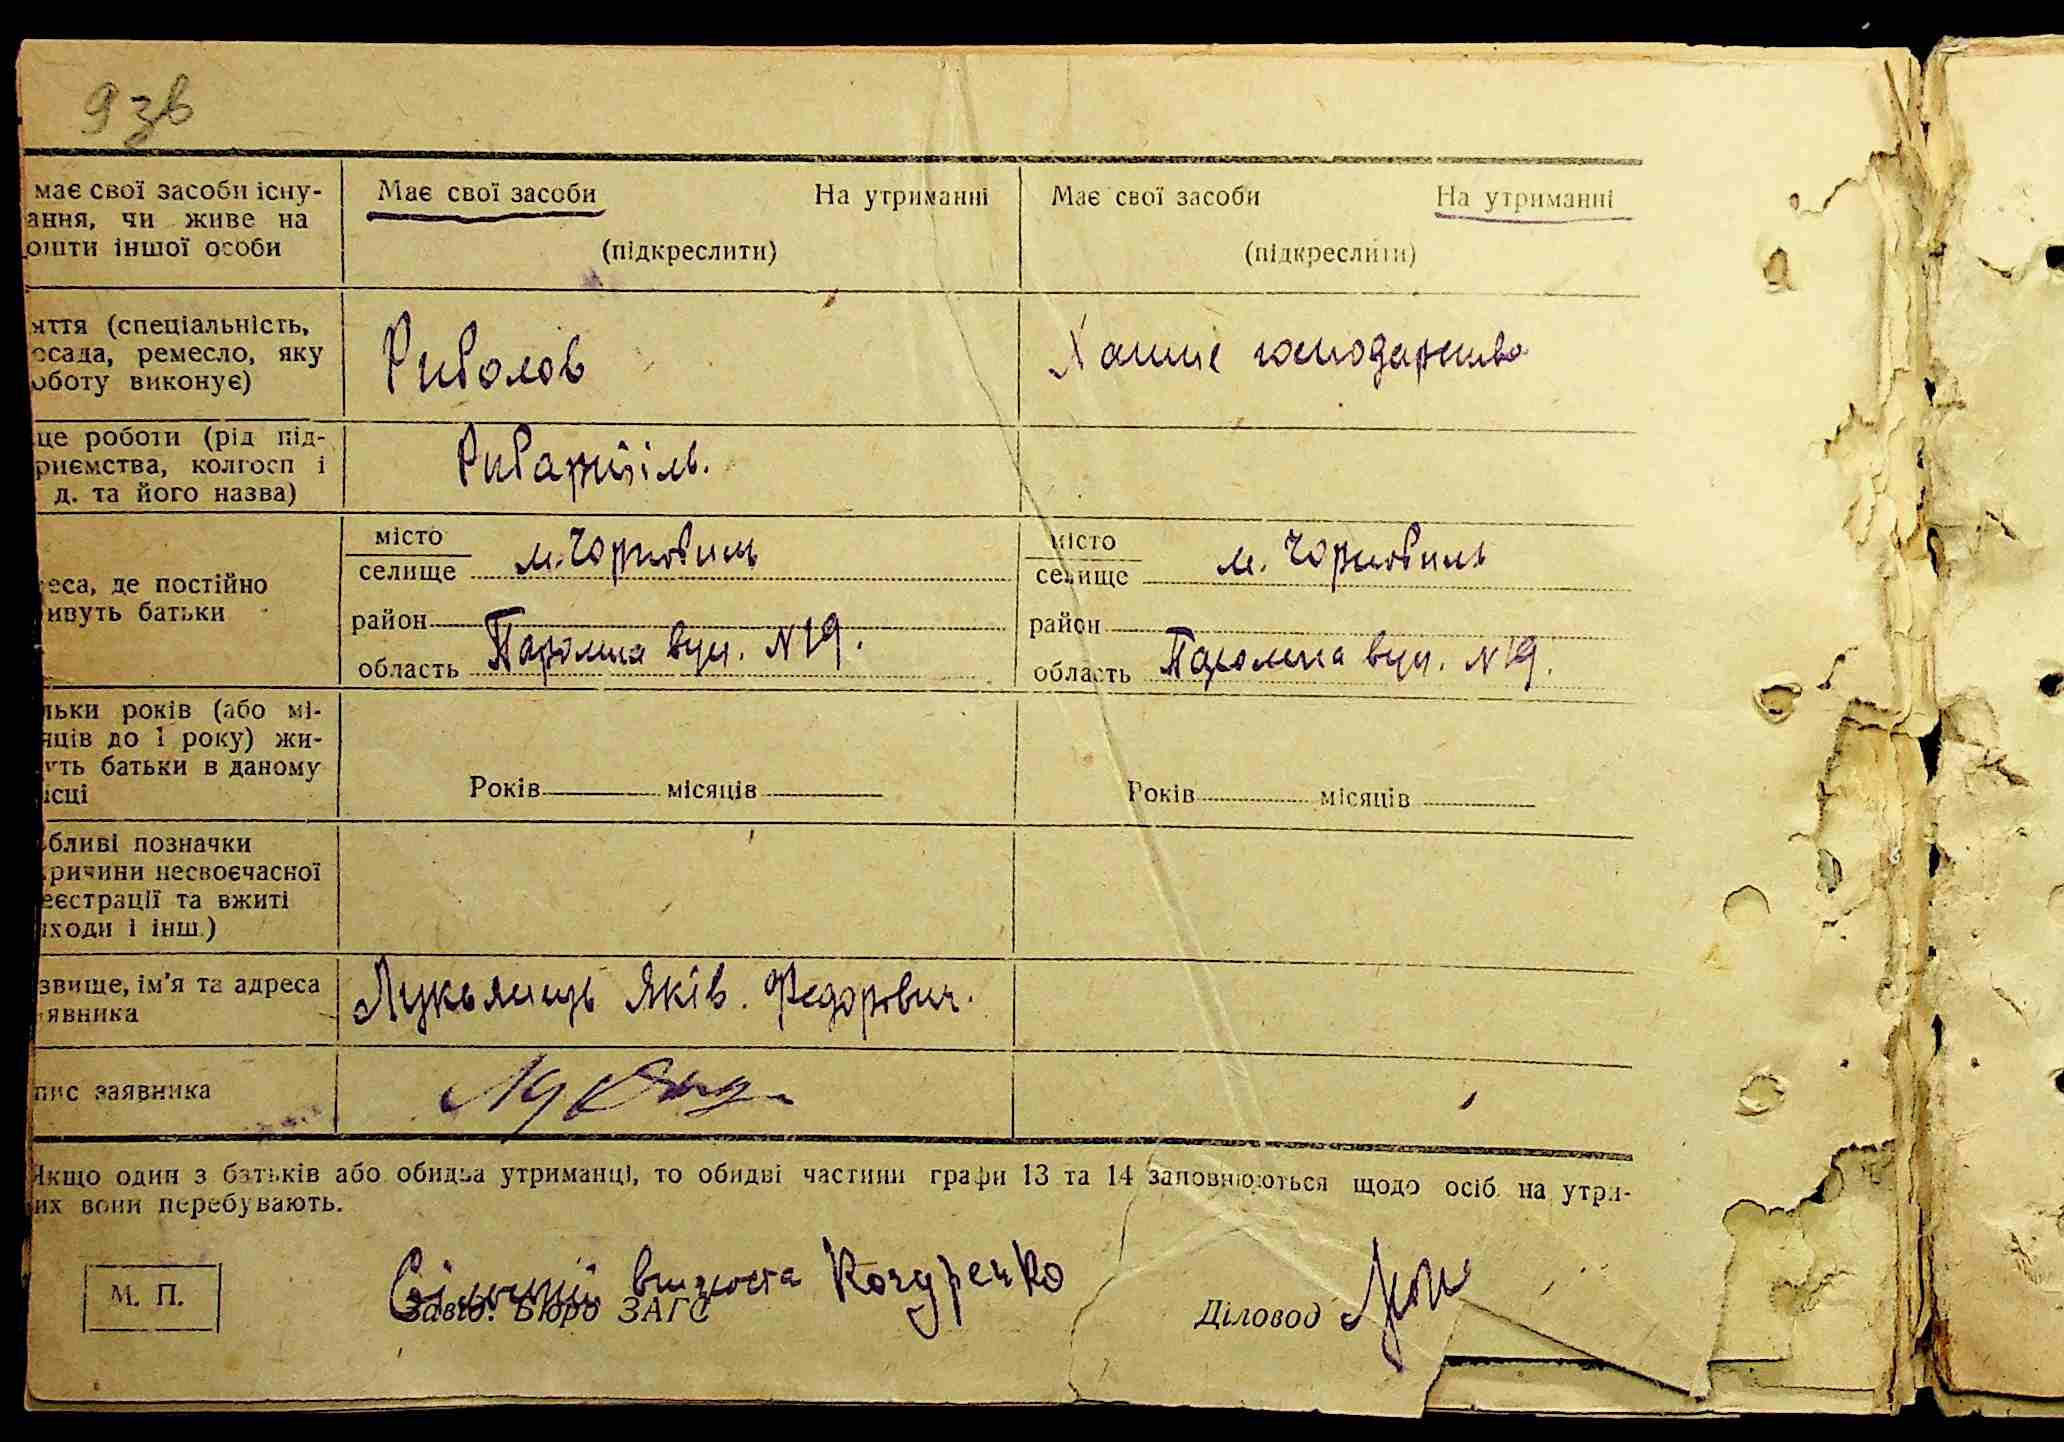 9зв
має свої засоби існу-
ання, чи живе на
ошти іншої особи
Має свої засоби На утриманні
(підкреслити)
Має свої засоби На утриманні
(підкреслити)
яття (спеціальність,
осада, ремесло, яку
оботу виконує)
Риболов
Хатнє господарство
це роботи (рід під-
риємства, колгосп і
д. та його назва)
Рибартіль.
еса, де постійно
ивуть батьки
місто
селище м. Чорнобиль
район
область вул. N 19.
місто
селище м. Чорнобиль
район
область вул. N 19.
льки років (або мі-
яців до 1 року) жи-
уть батьки в даному
ісці
Років місяців
Років місяців
бливі позначки
ричини несвоєчасної
еєстрації та вжиті
ходи і інш.)
звище, ім'я та адреса
явника
Лукьянець Яків. Федорович.
пис заявника
Якщо один з батьків або обидва утриманці, то обидві частини графи 13 та 14 заповнюються щодо осіб, на утри-
их вони перебувають.
М. П.
Кочуренко
Завід. Бюро ЗАГС
Діловод